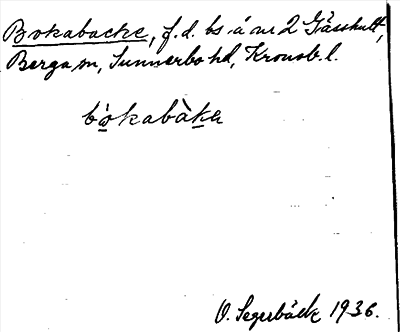 Bokabacke, f.d. bs å nr 2 Gåsshult,
Berga sn, Sunnerbo hd, Kronob. l.
bòkabàka
O. Segerbäck 1936.